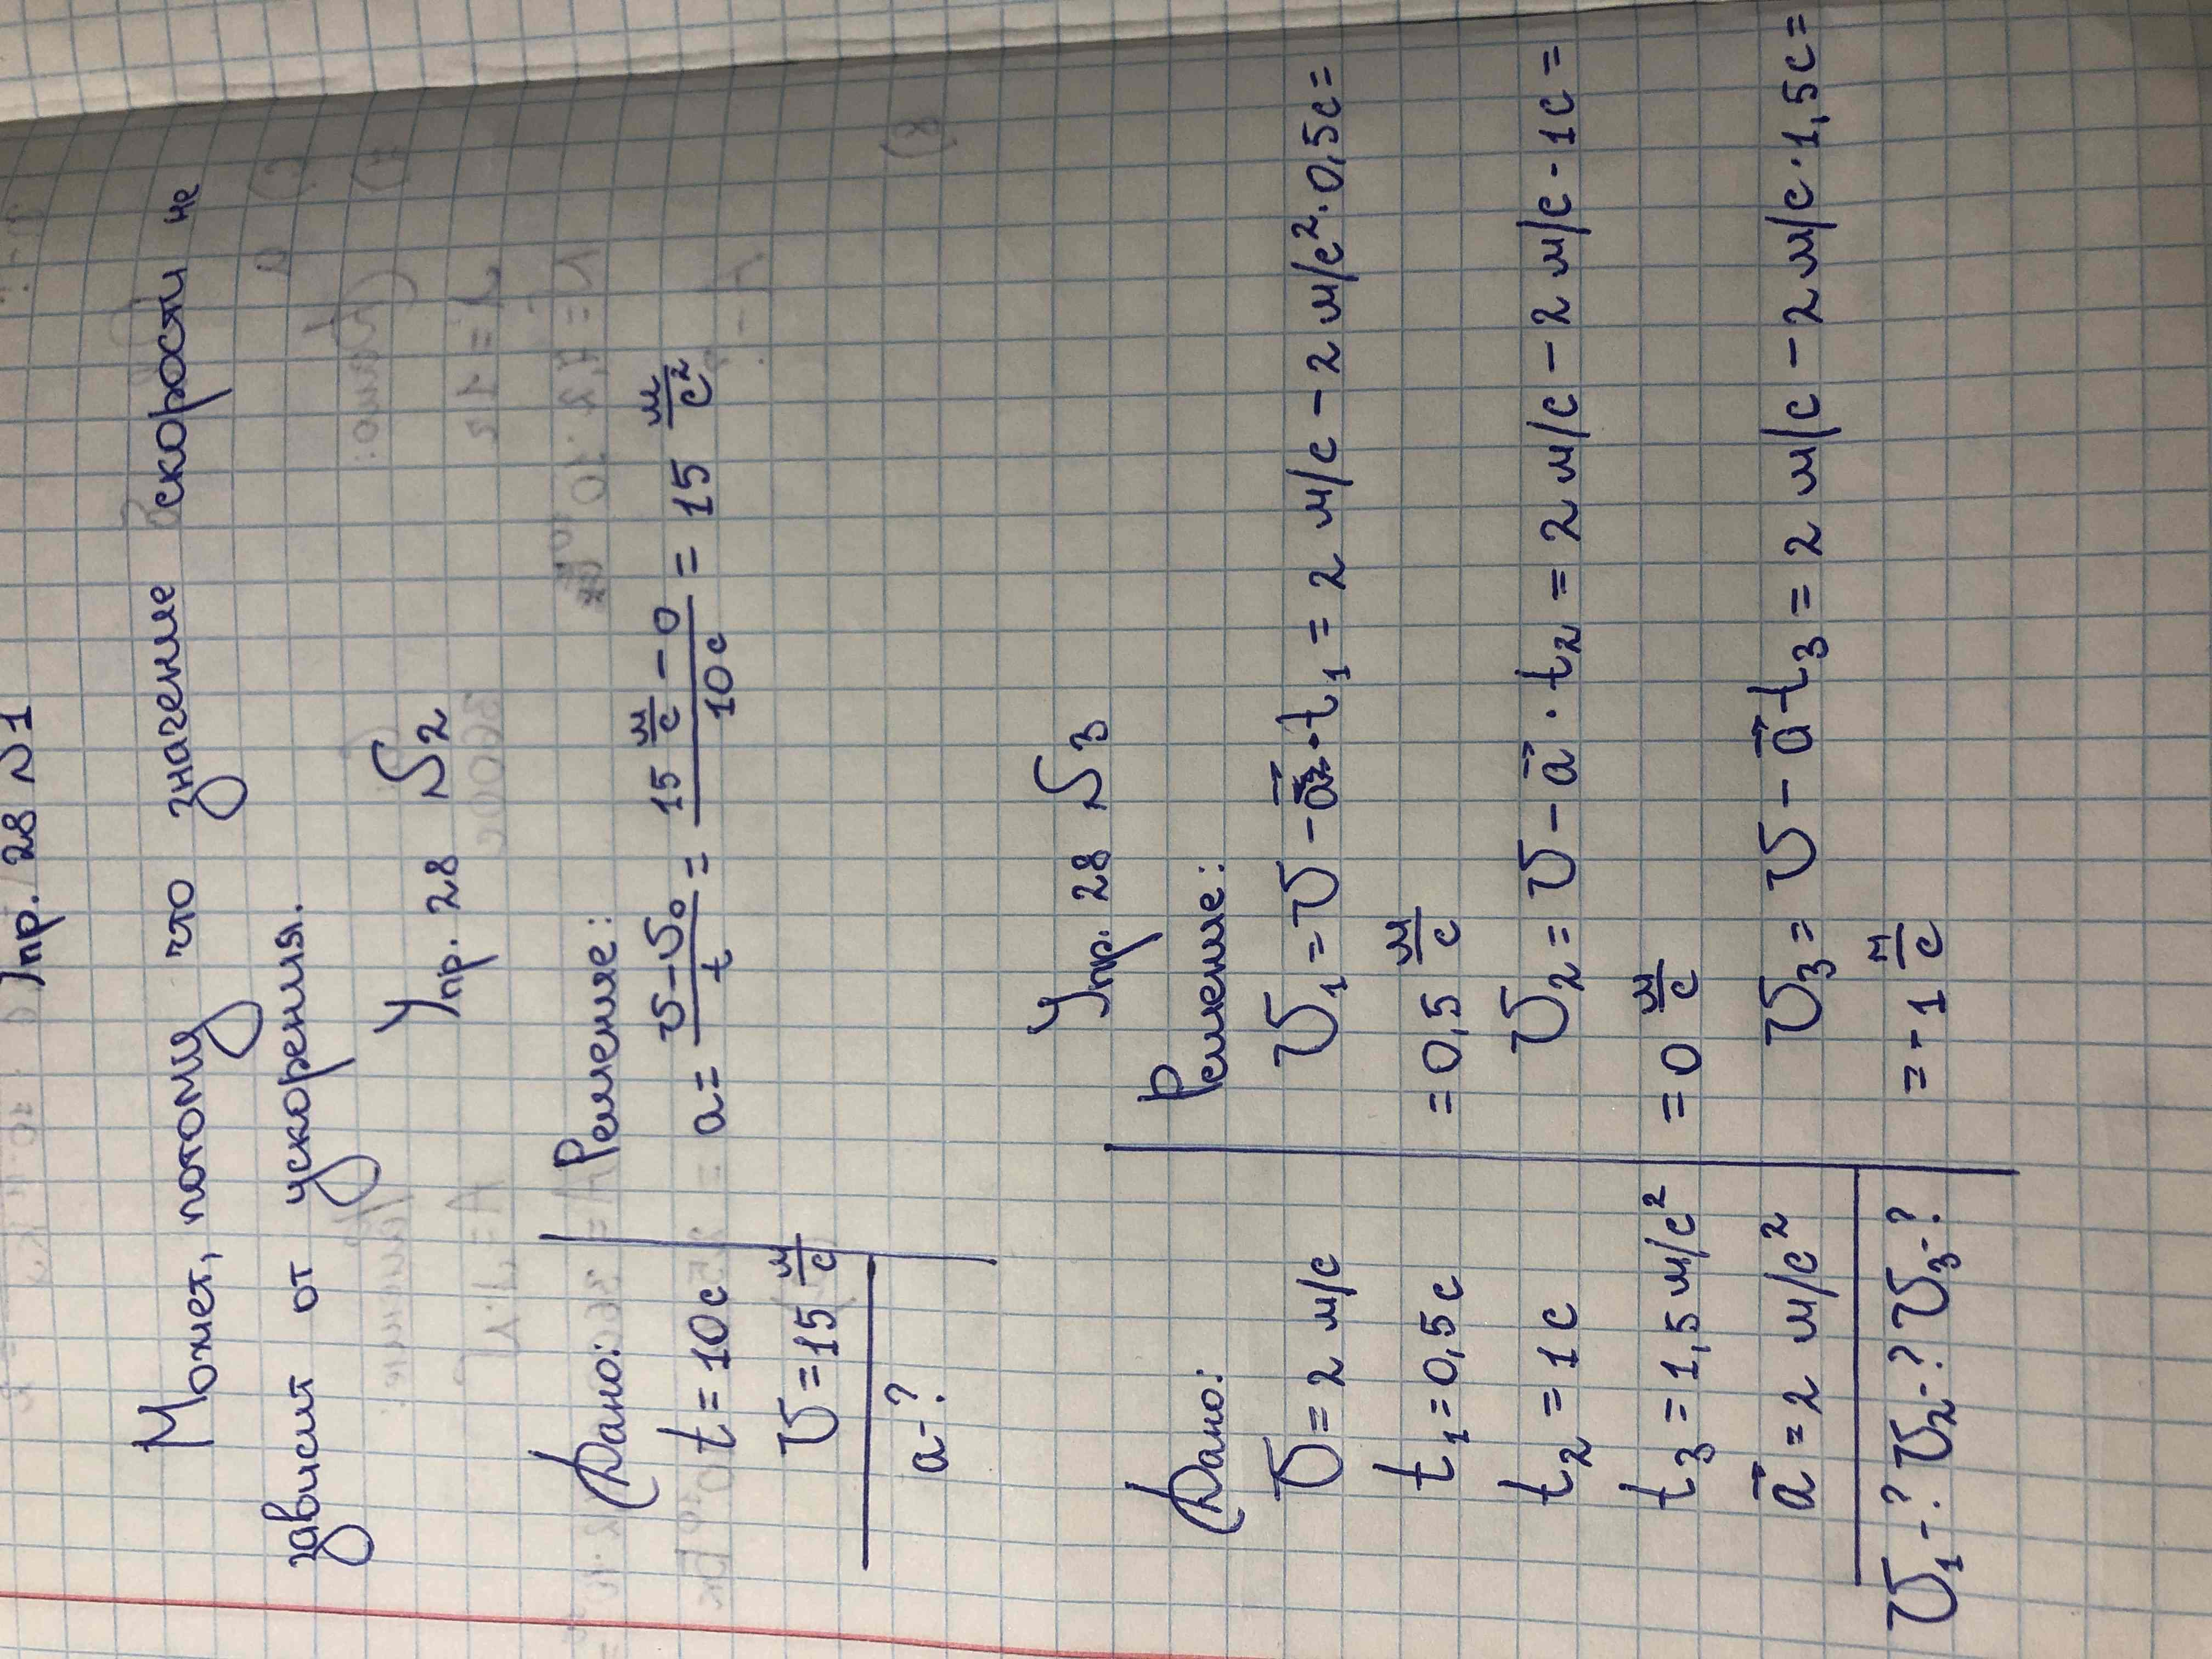 Упр. 28 №1
Может, потому что значение скорости не
зависит от ускорения.
Упр. 28 №2
Дано:
t = 10 с
υ = 15 м/с
a - ?
Решение:
a = (υ - υ₀)/t = (15 м/с - 0)/10 с = 15 м/с²
Упр. 28 №3
Дано:
υ = 2 м/с
t₁ = 0,5 с
t₂ = 1 с
t₃ = 1,5 м/с²
a⃗ = 2 м/с²
υ₁ - ? υ₂ - ? υ₃ - ?
Решение:
υ₁ = υ - a⃗ · t₁ = 2 м/с - 2 м/с² · 0,5 с =
= 0,5 м/с
υ₂ = υ - a⃗ · t₂ = 2 м/с - 2 м/с · 1 с =
= 0 м/с
υ₃ = υ - a⃗ t₃ = 2 м/с - 2 м/с · 1,5 с =
= - 1 м/с